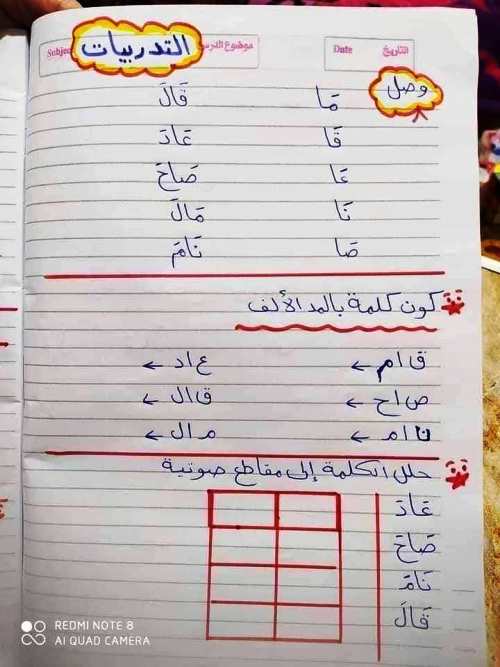 التدريبات
Subject
موضوع الدرس
Date
التاريخ
وصل
مَا قَالَ
قَا عَادَ
عَا صَاحَ
نَا مَالَ
صَا نَامَ
كون كلمة بالمد الألف
ق ا م ← ع ا د ←
ص ا ح ← ق ا ل ←
ن ا م ← م ا ل ←
حلل الكلمة إلى مقاطع صوتية
عَادَ
صَاحَ
نَامَ
قَالَ
REDMI NOTE 8
AI QUAD CAMERA